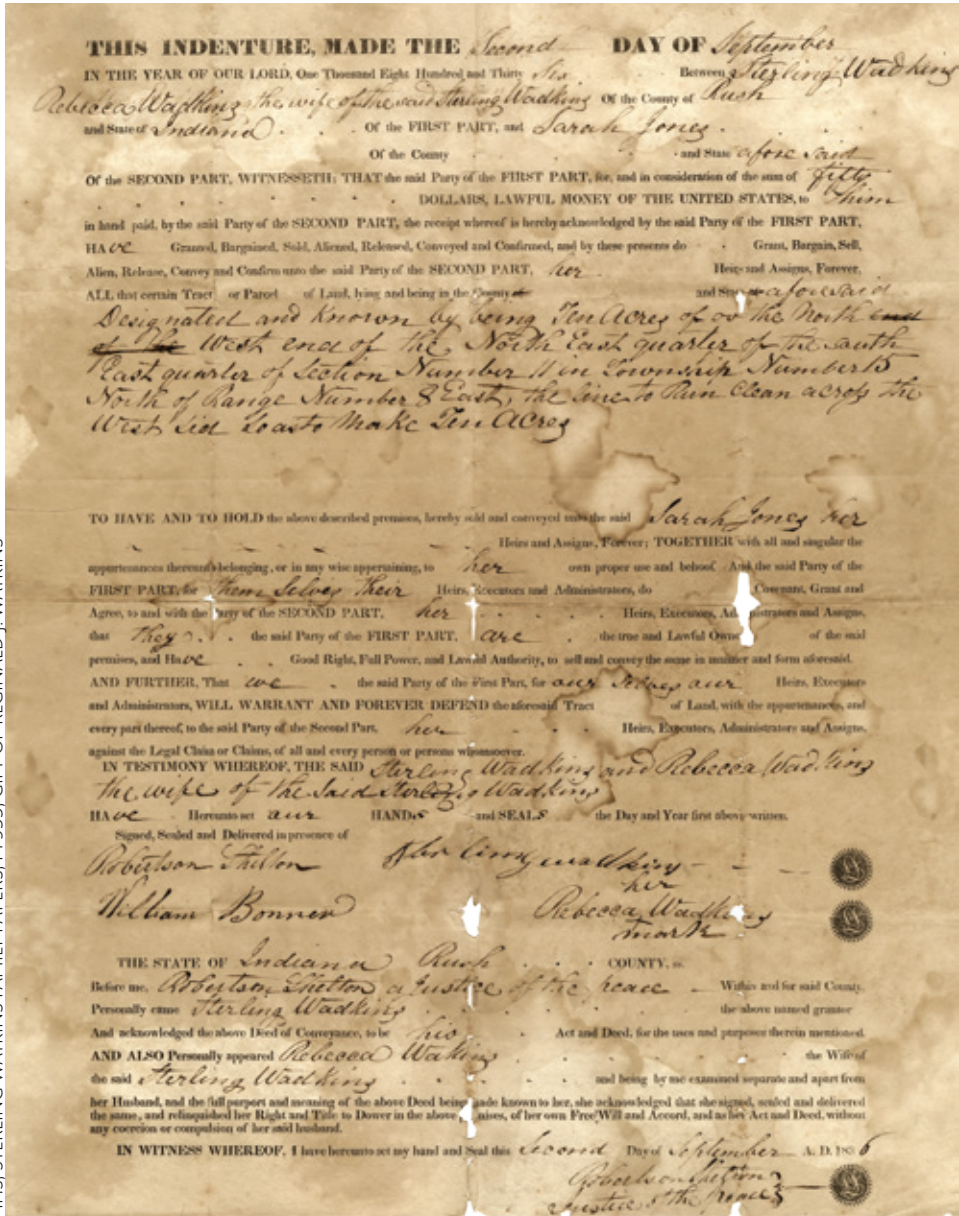 THIS INDENTURE, MADE THE Second DAY OF September
IN THE YEAR OF OUR LORD, One Thousand Eight Hundred and Thirty Six Between Sterling Wadkins
Rebecca Wadkins the wife of the said Sterling Wadkins Of the County of Rush
and State of Indiana . . Of the FIRST PART, and Sarah Jones .
Of the County . . . and State afore said
Of the SECOND PART, WITNESSETH; THAT the said Party of the FIRST PART, for, and in consideration of the sum of fifty
. . . . . DOLLARS, LAWFUL MONEY OF THE UNITED STATES, to Thim
in hand paid, by the said Party of the SECOND PART, the receipt whereof is hereby acknowledged by the said Party of the FIRST PART,
HAVE Granted, Bargained, Sold, Aliened, Released, Conveyed and Confirmed, and by these presents do . Grant, Bargain, Sell,
Alien, Release, Convey and Confirm unto the said Party of the SECOND PART, her Heirs and Assigns, Forever,
ALL that certain Tract or Parcel of Land, lying and being in the County and State aforesaid
Designated and Known by being Ten Acres of the North end
of the West end of the North East quarter of the South
East quarter of Section Number 11 in Township Number 15
North of Range Number 8 East, the line to Run Clean across the
West Sid So as to Make Ten Acres
TO HAVE AND TO HOLD the above described premises, hereby sold and conveyed unto the said Sarah Jones her
Heirs and Assigns, Forever; TOGETHER with all and singular the
appurtenances thereunto belonging, or in any wise appertaining, to her own proper use and behoof And the said Party of the
FIRST PART, for them Selves their Heirs, Executors and Administrators, do Covenant, Grant and
Agree, to and with the Party of the SECOND PART, her . . . Heirs, Executors, Administrators and Assigns,
that they . . the said Party of the FIRST PART, are . . the true and Lawful Owner of the said
premises, and Have . . Good Right, Full Power, and Lawful Authority, to sell and convey the same in manner and form aforesaid.
AND FURTHER, That we . the said Party of the First Part, for our Selves our Heirs, Executors
and Administrators, WILL WARRANT AND FOREVER DEFEND the aforesaid Tract of Land, with the appurtenances, and
every part thereof, to the said Party of the Second Part, her . . . Heirs, Executors, Administrators and Assigns,
against the Legal Claim or Claims, of all and every person or persons whomsoever.
IN TESTIMONY WHEREOF, THE SAID Sterling Wadkins and Rebecca Wadkins
the wife of the Said Sterling Wadkins
HAVE . Hereunto set our HANDS and SEALS the Day and Year first above written.
Signed, Sealed and Delivered in presence of
Robertson Shelton Sterling wadkins
her
William Bonner Rebecca Wadkins
mark
THE STATE OF Indiana Rush . . COUNTY, ss.
Before me, Robertson Shelton a Justice of the peace Within and for said County,
Personally came Sterling Wadkins . . . the above named grantor
And acknowledged the above Deed of Conveyance, to be his . . . Act and Deed, for the uses and purposes therein mentioned.
AND ALSO Personally appeared Rebecca Watkins . . . the Wife of
the said Sterling Wadkins . . . and being by me examined separate and apart from
her Husband, and the full purport and meaning of the above Deed being made known to her, she acknowledged that she signed, sealed and delivered
the same, and relinquished her Right and Title to Dower in the above premises, of her own Free Will and Accord, and as her Act and Deed, without
any coercion or compulsion of her said husband.
IN WITNESS WHEREOF, I have hereunto set my hand and Seal this Second Day of September A. D. 1836
Robertson Shelton
Justice of the Peace
IHS, STERLING WATKINS FAMILY PAPERS, F1555, GIFT OF REGINALD J. WATKINS